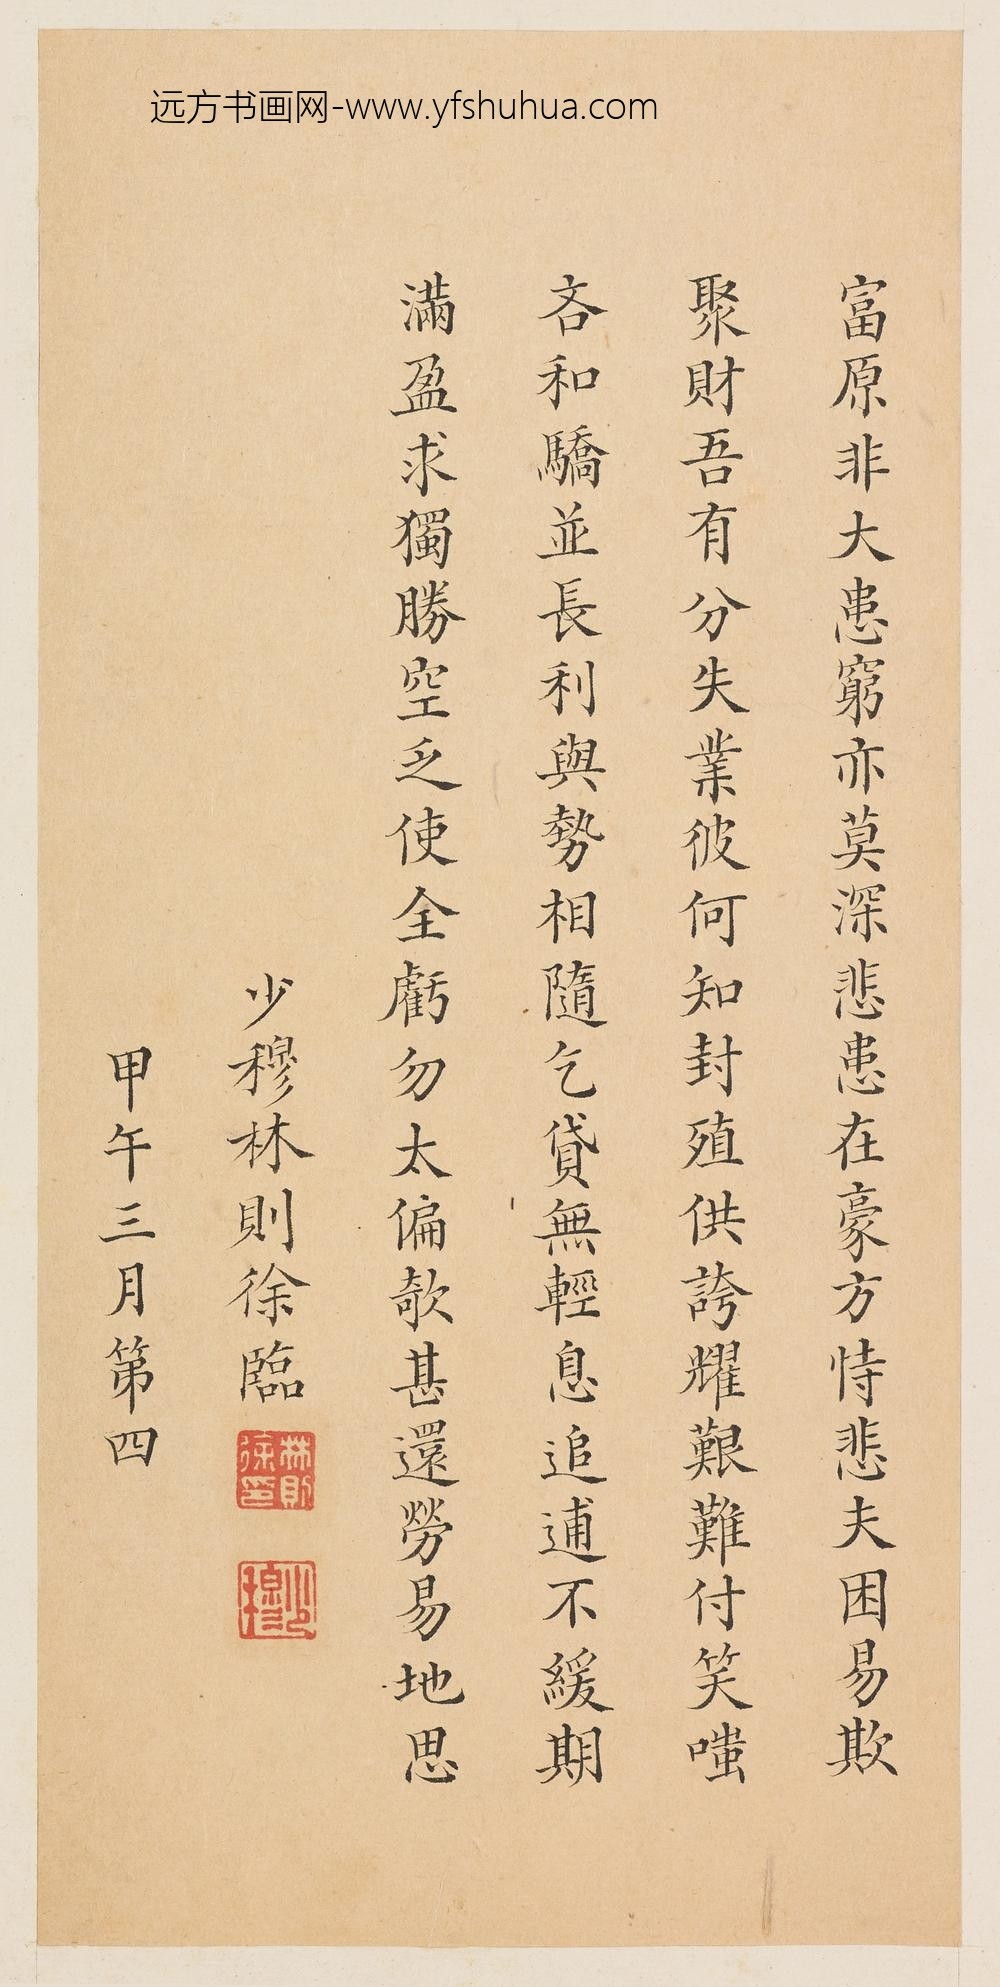 远方书画网-www.yfshuhua.com
富原非大患窮亦莫深悲患在豪方恃悲夫困易欺
聚財吾有分失業彼何知封殖供誇耀艱難付笑嗤
吝和驕並長利與勢相隨乞貸無輕息追逋不緩期
滿盈求獨勝空乏使全虧勿太偏欹甚還勞易地思
少穆林則徐臨
林則徐印
少穆
甲午三月第四